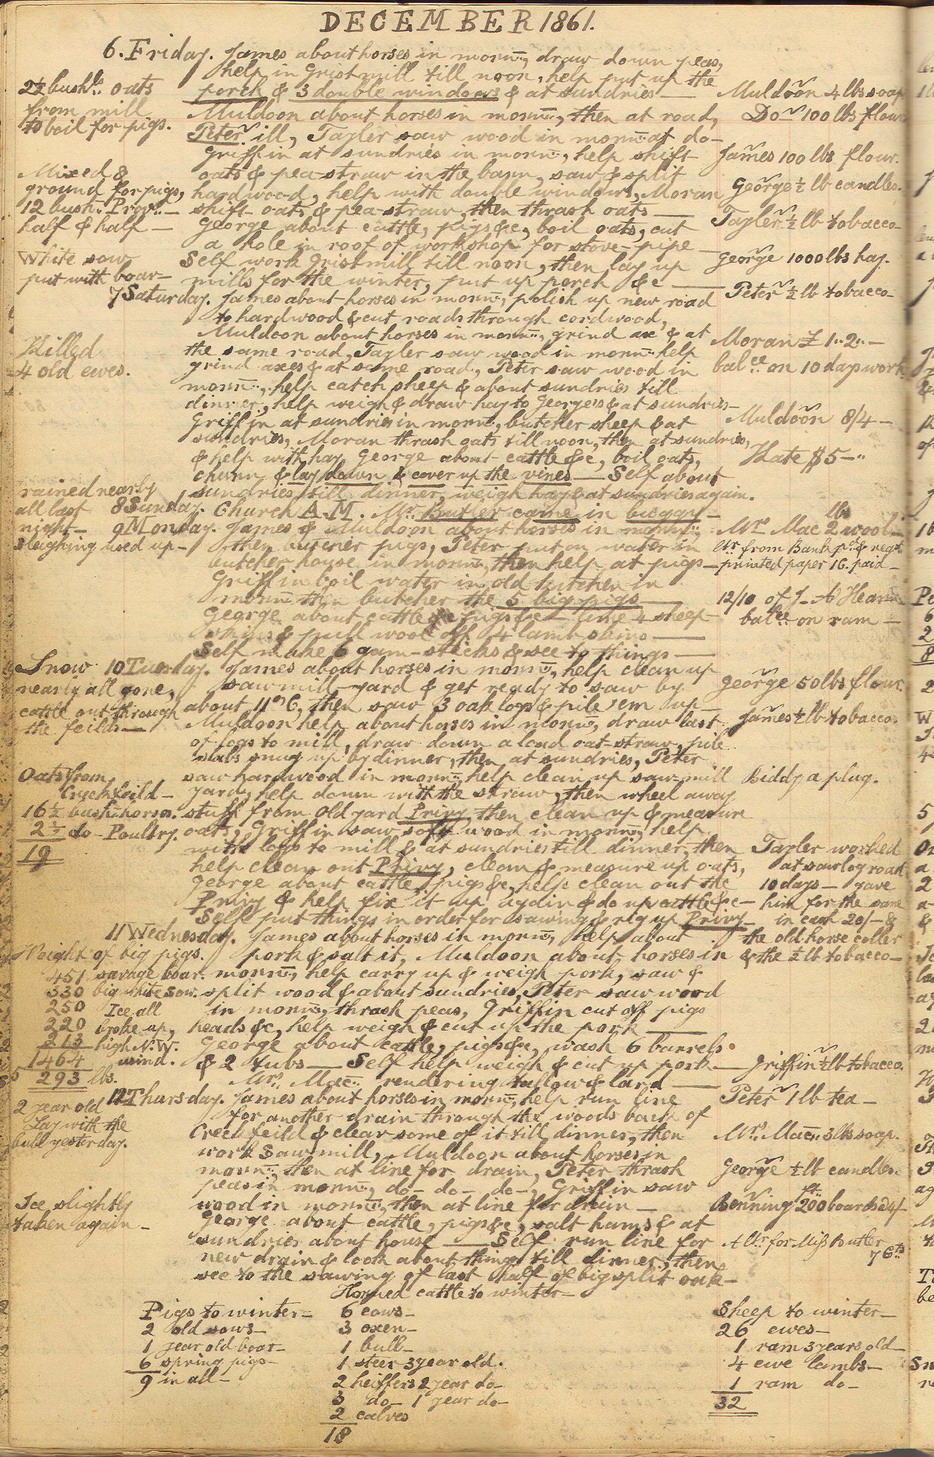 DECEMBER 1861.
6. Friday. James about horses in morn:g, draw down peas,
help in Gristmill till noon, help put up the
porch & 3 double windows & at sundries —
2½ bushls oats
from mill
to boil for pigs.
Muldoon about horses in morn:g, then at road,
Peter ill, Tayler saw wood in morn:g at do —
Griffin at sundries in morn:g, help shift
oats & pea straw in the barn, saw & split
hardwood, help with double windows, Moran
shift oats & pea straw, then thrash oats —
George about cattle, pigs &c, boil oats, cut
a hole in roof of workshop for stove-pipe —
Self work Gristmill till noon, then lay up
mills for the winter, put up porch &c —
Mixed &
ground for pigs,
12 bush: Prov:r —
half & half —
White sow
put with boar —
Muldoon 4 lbs soap
Do 100 lbs flour
James 100 lbs flour.
George ½ lb candles.
Tayler ½ lb tobacco
George 1000 lbs hay.
Peter ½ lb tobacco —
7 Saturday. James about horses in morn:g, polish up new road
to hardwood & cut roads through cordwood,
Muldoon about horses in morn:g, grind axe & at
the same road, Tayler saw wood in morn:g help
grind axes & at same road, Peter saw wood in
morn:g, help catch sheep & about sundries till
dinner, help weigh & draw hay to George's & at sundries —
Griffin at sundries in morn:g, butcher sheep & at
sundries, Moran thrash oats till noon, then at sundries,
& help with hay, George about cattle &c, boil oats,
churn, & lay down & cover up the vines — Self about
sundries till dinner, weigh hay & at sundries again.
Killed
4 old ewes.
Moran £ 1..2.. —
balce on 10 days work
Muldoon 8/4 —
Kate $5 —..
rained nearly
all last
night —
Sleighing used up —
8 Sunday. Church A.M. Mr Butler came in buggy —
9 Monday. James & Muldoon about horses in morn:g
then butcher pigs, Peter put on water in
butcher house in morn:g, then help at pigs —
Griffin boil water in old kitchen in
morn:g then butcher the 5 big pigs —
George about cattle & pigs &c — line 4 sheep
skins & pull wool off 4 lamb skins —
Self make 6 gam-sticks & see to things —
Mrs Mac 2 lbs wool
ltr from Bank
printed paper 1c. paid —
12/10 of J. A. Hearn
balce on ram —
Snow
nearly all gone,
cattle out through
the feilds —
10 Tuesday. James about horses in morn:g, help clean up
saw mill yard & get ready to saw by
about 11 o'c, then saw 3 oak logs & pile 'em up —
Muldoon help about horses in morn:g, draw last
of logs to mill, draw down a load oat-straw, pile
slabs snug up by dinner, then, at sundries, Peter
saw hardwood in morn:g, help clean up saw mill
yard, help down with the straw, then wheel away
stuff from old yard Privy then clean up & measure
oats, Griffin saw soft wood in morn:g, help
with logs to mill & at sundries till dinner, then
help clean out Privy, clean & measure up oats,
George about cattle, pigs &c, help clean out the
Privy & help fix it up again & do up cattle &c —
Self put things in order for sawing & rig up Privy —
Oats from
Creekfeild —
16½ bush: horses.
2½ do — Poultry.
19
George 50 lbs flour
James ½ lb tobacco.
Biddy a plug.
Tayler worked
at sawlog road
10 days — gave
him for the same
in cash 20/- &
the old horse coller
& the ½ lb tobacco —
11 Wednesday. James about horses in morn:g, help about
pork & salt it, Muldoon about horses in
morn:g, help carry up & weigh pork, saw &
split wood & about sundries, Peter saw wood
in morn:g, thrash peas, Griffin cut off pigs
heads &c, help weigh & cut up the pork —
George about cattle, pigs &c, wash 6 barrels
& 2 tubs — Self help weigh & cut up pork —
Mrs Mac: rendering tallow & lard —
Weight of big pigs.
451 savage boar.
330 big white sow.
250 Ice all
220 broke up,
213 high N.W.
1464 wind.
293 lbs.
Griffin ½ lb tobacco.
12 Thursday. James about horses in morn:g, help run line
for another drain through the woods back of
Creekfeild & clear some of it till dinner, then
work Sawmill, Muldoon about horses in
morn:g, then at line for drain, Peter thrash
peas in morn:g, do— do— do—, Griffin saw
wood in morn:g, then at line for drain —
George about cattle, pigs &c, salt hams & at
sundries about house — Self run line for
new drain & look about things till dinner, then
see to the sawing of last half of big split oak —
2 year old
Lay with the
bull yesterday.
Ice slightly
taken again —
Peter 1 lb tea —
Mrs Mac: 3 lbs soap.
George ½ lb candles
Benning 200 ft boards 4/-
A ltr for Miss Butler
7 cts
Pigs to winter —
2 old sows —
1 year old boar —
6 spring pigs —
9 in all —
Horned cattle to winter —
6 cows —
3 oxen —
1 bull —
1 steer 3 year old.
2 heiffers 2 year do —
3 do — 1 year do —
2 calves
18
Sheep to winter —
26 ewes —
1 ram 3 years old —
4 ewe lambs —
1 ram do —
32